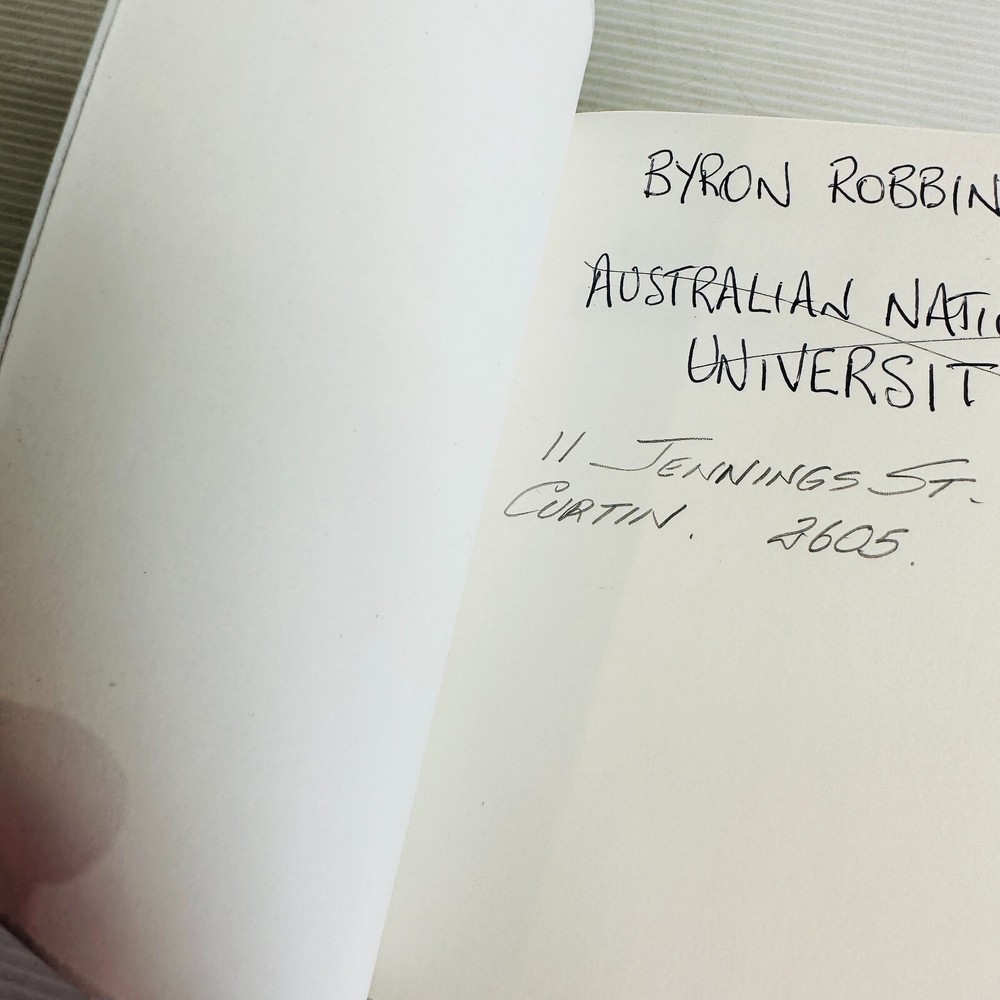 BYRON ROBBIN
AUSTRALIAN NATI
UNIVERSIT
11 JENNINGS ST.
CURTIN. 2605.